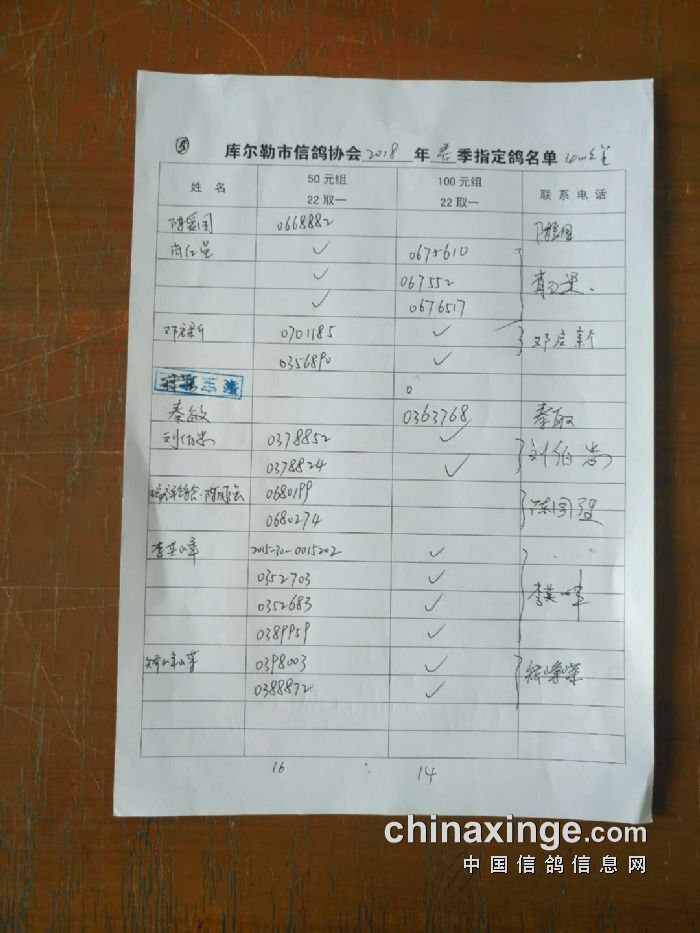 ⑤ 库尔勒市信鸽协会 2018 年 春 季指定鸽名单
姓 名 50元组 22取一 100元组 22取一 联系电话
0668882
✓ 0675610
✓ 067552
✓ 0676517
邓启新 0701185 ✓ 邓启新
0356890 ✓
0
秦敏 0363768 秦敏
刘伯嵩 0378852 ✓ 刘伯嵩
0378824 ✓
陈国强 0680199 陈国强
0680274
李英峰 2015-30-0015202 ✓ 李英峰
0352703 ✓
0352683 ✓
0389959 ✓
0398003 ✓
0388872 ✓
16 14
chinaxinge.com
中国信鸽信息网